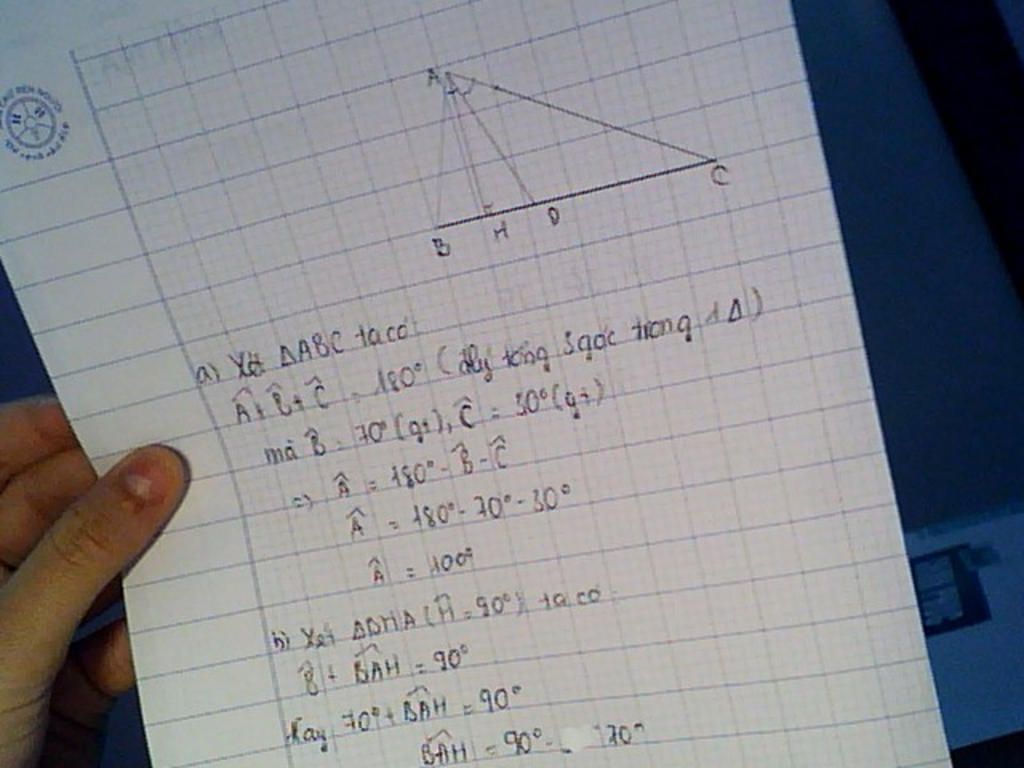 A
B
H
D
C
a) Xét ΔABC ta có:
Â + B̂ + Ĉ = 180° (đly tổng 3 góc trong 1 Δ)
mà B̂ = 70° (gt), Ĉ = 30° (gt)
=) Â = 180° - B̂ - Ĉ
Â = 180° - 70° - 30°
Â = 100°
b) Xét ΔBHA (Ĥ = 90°) ta có:
B̂ + BAH = 90°
Hay 70° + BAH = 90°
BAH = 90° - 70°